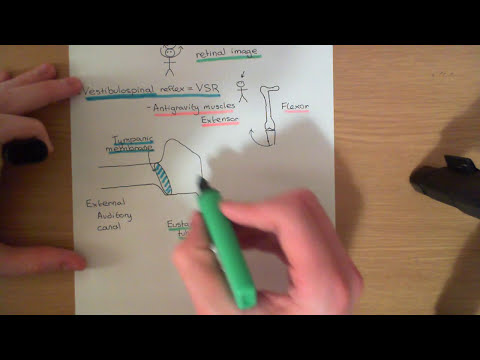 retinal image
Vestibulospinal reflex = VSR
- Antigravity muscles
Extensor
Flexor
Tympanic
membrane
External
Auditory
canal